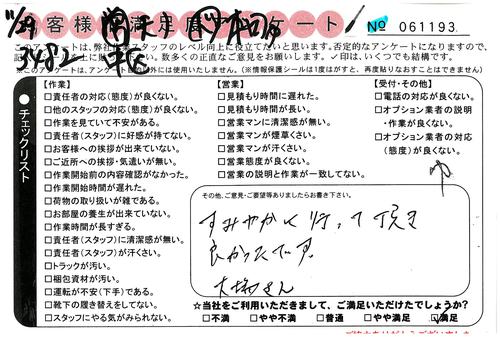 11/29
お客様満足度アンケート
No 061193
3482
このアンケートは、弊社作業スタッフのレベル向上に役立てたいと思います。否定的なアンケートになりますので、
数多くのご正直なご意見をお願いします。✓印は、いくつでも結構です。
※このアンケートは、アンケート
以外には使用いたしません。(※情報保護シールは1度がすと、再度貼りなおすことはできません)
チェックリスト
【作業】
□責任者の対応(態度)が良くない。
□他のスタッフの対応(態度)が良くない。
□作業を見ていて不安がある。
□責任者(スタッフ)に好感が持てない。
□お客様への挨拶が出来ていない。
□ご近所への挨拶・気遣いが無い。
□作業開始前の内容確認がなかった。
□作業開始時間が遅れた。
□荷物の取り扱いが雑である。
□お部屋の養生が出来ていない。
□作業時間が長すぎる。
□責任者(スタッフ)に清潔感が無い。
□責任者(スタッフ)が汗くさい。
□トラックが汚い。
□梱包資材が汚い。
□運転が不安(下手)である。
□靴下の履き替えをしてない。
□スタッフにやる気がみられない。
【営業】
□見積もり時間に遅れた。
□見積もり時間が長い。
□営業マンに清潔感が無い。
□営業マンが煙草くさい。
□営業マンが汗くさい。
□営業態度が良くない。
□営業の説明と作業が一致してない。
【受付・その他】
□電話の対応が良くない。
□オプション業者の説明
・作業が良くない。
□オプション業者の対応
(態度)が良くない。
その他、ご意見・ご要望等ありましたらお書き下さい。
すみやかに行って頂き
良かったです。
☆当社をご利用いただきまして、ご満足いただけたでしょうか?
□不満 □やや不満 □普通 □やや満足 ☑満足